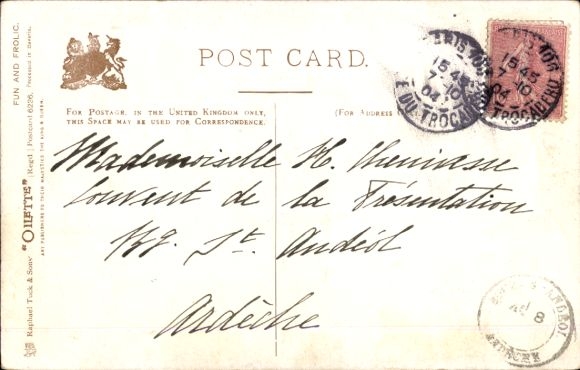 POST CARD.
FOR POSTAGE IN THE UNITED KINGDOM ONLY,
THIS SPACE MAY BE USED FOR CORRESPONDENCE.
(FOR ADDRESS
FUN AND FROLIC.
PROCESSED IN
Raphael Tuck & Sons' "OILETTE" [Regd.] Postcard 6226,
ART PUBLISHERS TO THEIR MAJESTIES THE KING & QUEEN.
PARIS 106
15 45
7 - 10
04
R. DU TROCADERO
PARIS 106
15 45
7 - 10
TROCADERO
Mademoiselle H.
Couvent de la Présentation
Bg. St. Andéol
Ardèche
ANDEOL
8
ARDECHE